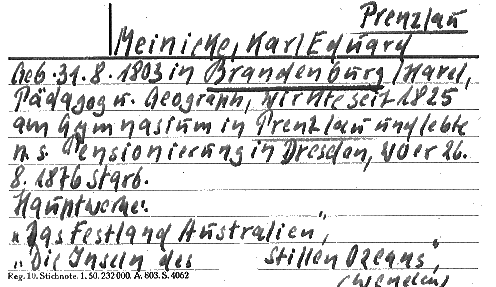 Prenzlau
Meinicke, Karl Eduard
Geb. 31.8.1803 in Brandenburg/Havel,
Pädagog u. Geograph, wirkte seit 1825
am Gymnasium in Prenzlau und lebte
n. s. Pensionierung in Dresden, wo er 26.
8.1876 starb.
Hauptwerke:
"Das Festland Australien",
"Die Inseln des Stillen Ozeans",
Reg. 10. Stichnote. 1. 50. 232000. A. 803. S. 4062